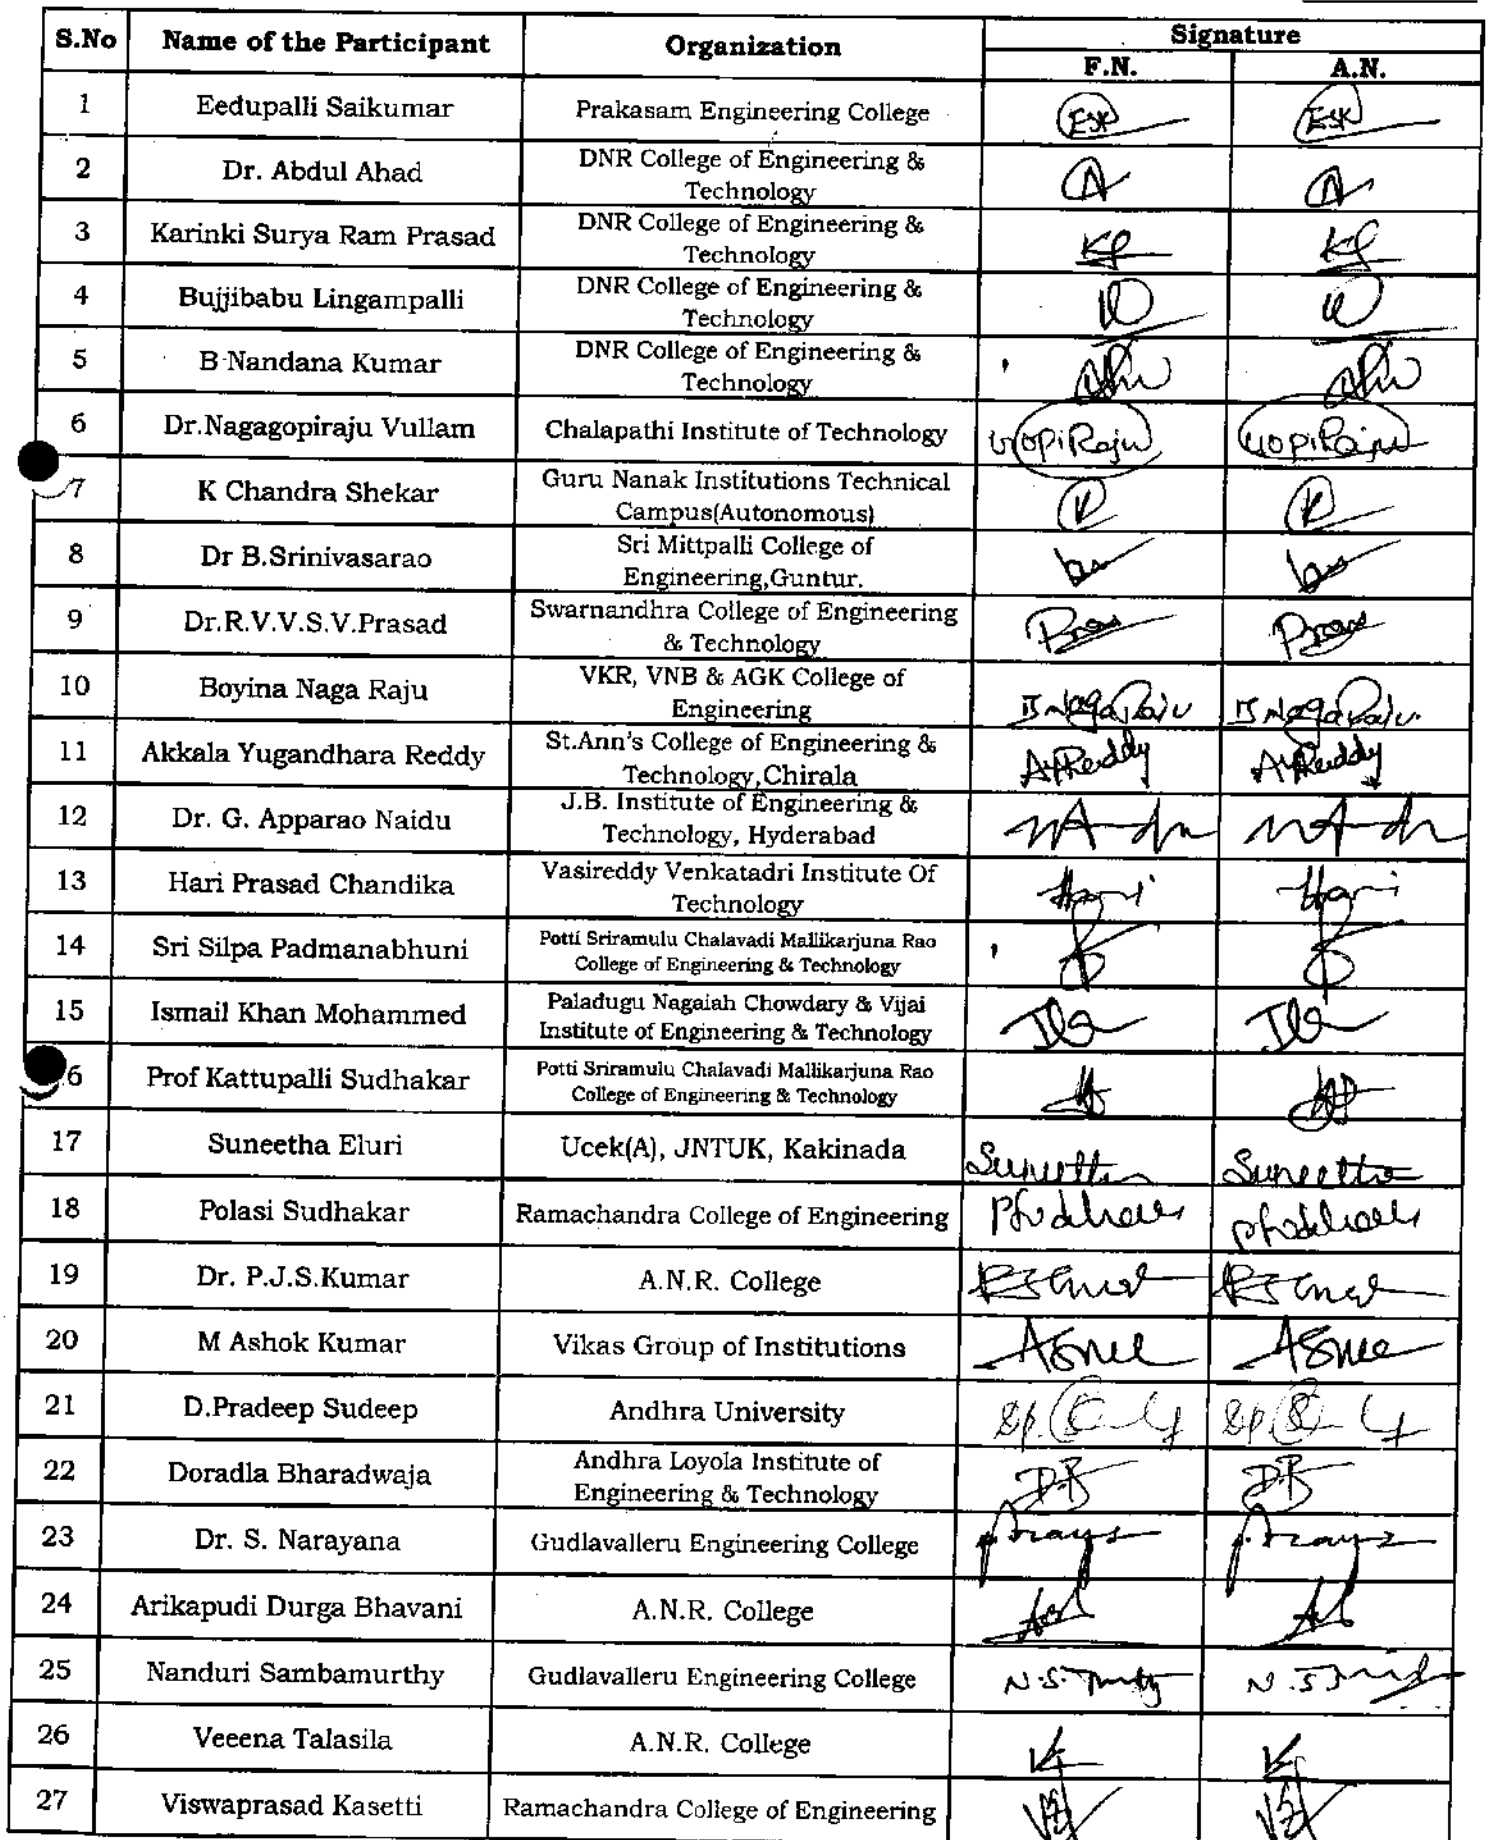 S.No Name of the Participant Organization Signature
F.N. A.N.
1 Eedupalli Saikumar Prakasam Engineering College ESK ESK
2 Dr. Abdul Ahad DNR College of Engineering &
Technology
3 Karinki Surya Ram Prasad DNR College of Engineering &
Technology
4 Bujjibabu Lingampalli DNR College of Engineering &
Technology
5 B Nandana Kumar DNR College of Engineering &
Technology
6 Dr.Nagagopiraju Vullam Chalapathi Institute of Technology GopiRaju GopiRaju
7 K Chandra Shekar Guru Nanak Institutions Technical
Campus(Autonomous)
8 Dr B.Srinivasarao Sri Mittpalli College of
Engineering,Guntur.
9 Dr.R.V.V.S.V.Prasad Swarnandhra College of Engineering
& Technology
10 Boyina Naga Raju VKR, VNB & AGK College of
Engineering B NagaRaju B NagaRaju
11 Akkala Yugandhara Reddy St.Ann's College of Engineering &
Technology,Chirala AYReddy AYReddy
12 Dr. G. Apparao Naidu J.B. Institute of Engineering &
Technology, Hyderabad
13 Hari Prasad Chandika Vasireddy Venkatadri Institute Of
Technology Hari Hari
14 Sri Silpa Padmanabhuni Potti Sriramulu Chalavadi Mallikarjuna Rao
College of Engineering & Technology
15 Ismail Khan Mohammed Paladugu Nagaiah Chowdary & Vijai
Institute of Engineering & Technology
6 Prof Kattupalli Sudhakar Potti Sriramulu Chalavadi Mallikarjuna Rao
College of Engineering & Technology
17 Suneetha Eluri Ucek(A), JNTUK, Kakinada Suneetha Suneetha
18 Polasi Sudhakar Ramachandra College of Engineering
19 Dr. P.J.S.Kumar A.N.R. College
20 M Ashok Kumar Vikas Group of Institutions
21 D.Pradeep Sudeep Andhra University
22 Doradla Bharadwaja Andhra Loyola Institute of
Engineering & Technology D.B D.B
23 Dr. S. Narayana Gudlavalleru Engineering College
24 Arikapudi Durga Bhavani A.N.R. College
25 Nanduri Sambamurthy Gudlavalleru Engineering College
26 Veeena Talasila A.N.R. College
27 Viswaprasad Kasetti Ramachandra College of Engineering